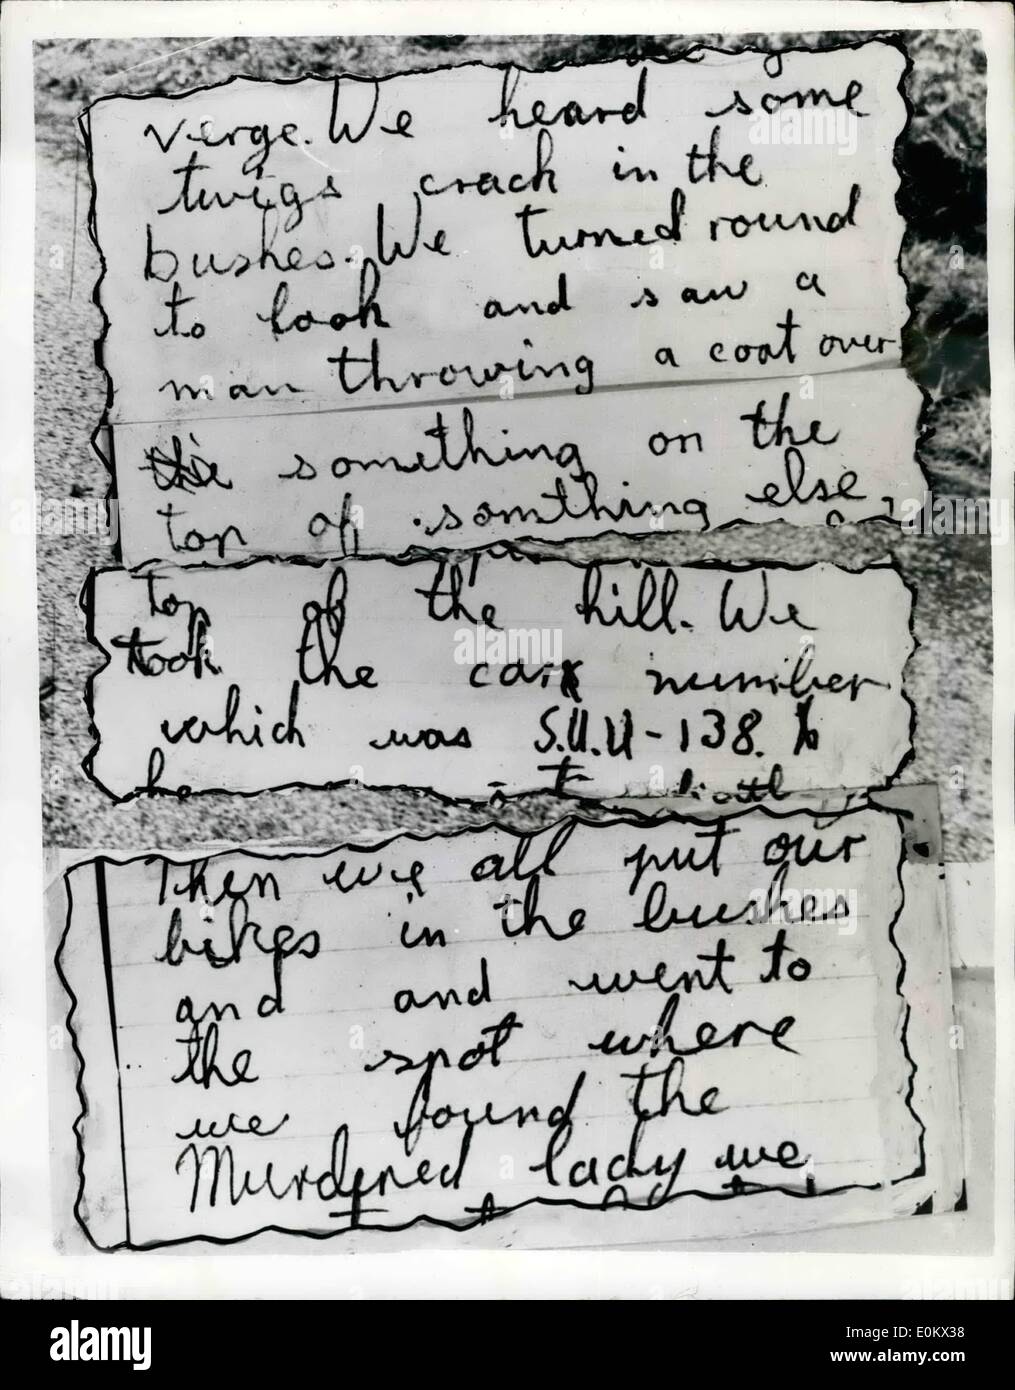 verge. We heard some
twigs crack in the
bushes. We turned round
to look and saw a
man throwing a coat over
something on the
top of somthing else,
top of the hill. We
took the car number
which was S.U.U-138.
he
Then we all put our
bikes in the bushes
and and went to
the spot where
we found the
Murdered lady we
alamy
Image ID: E0KX38
www.alamy.com